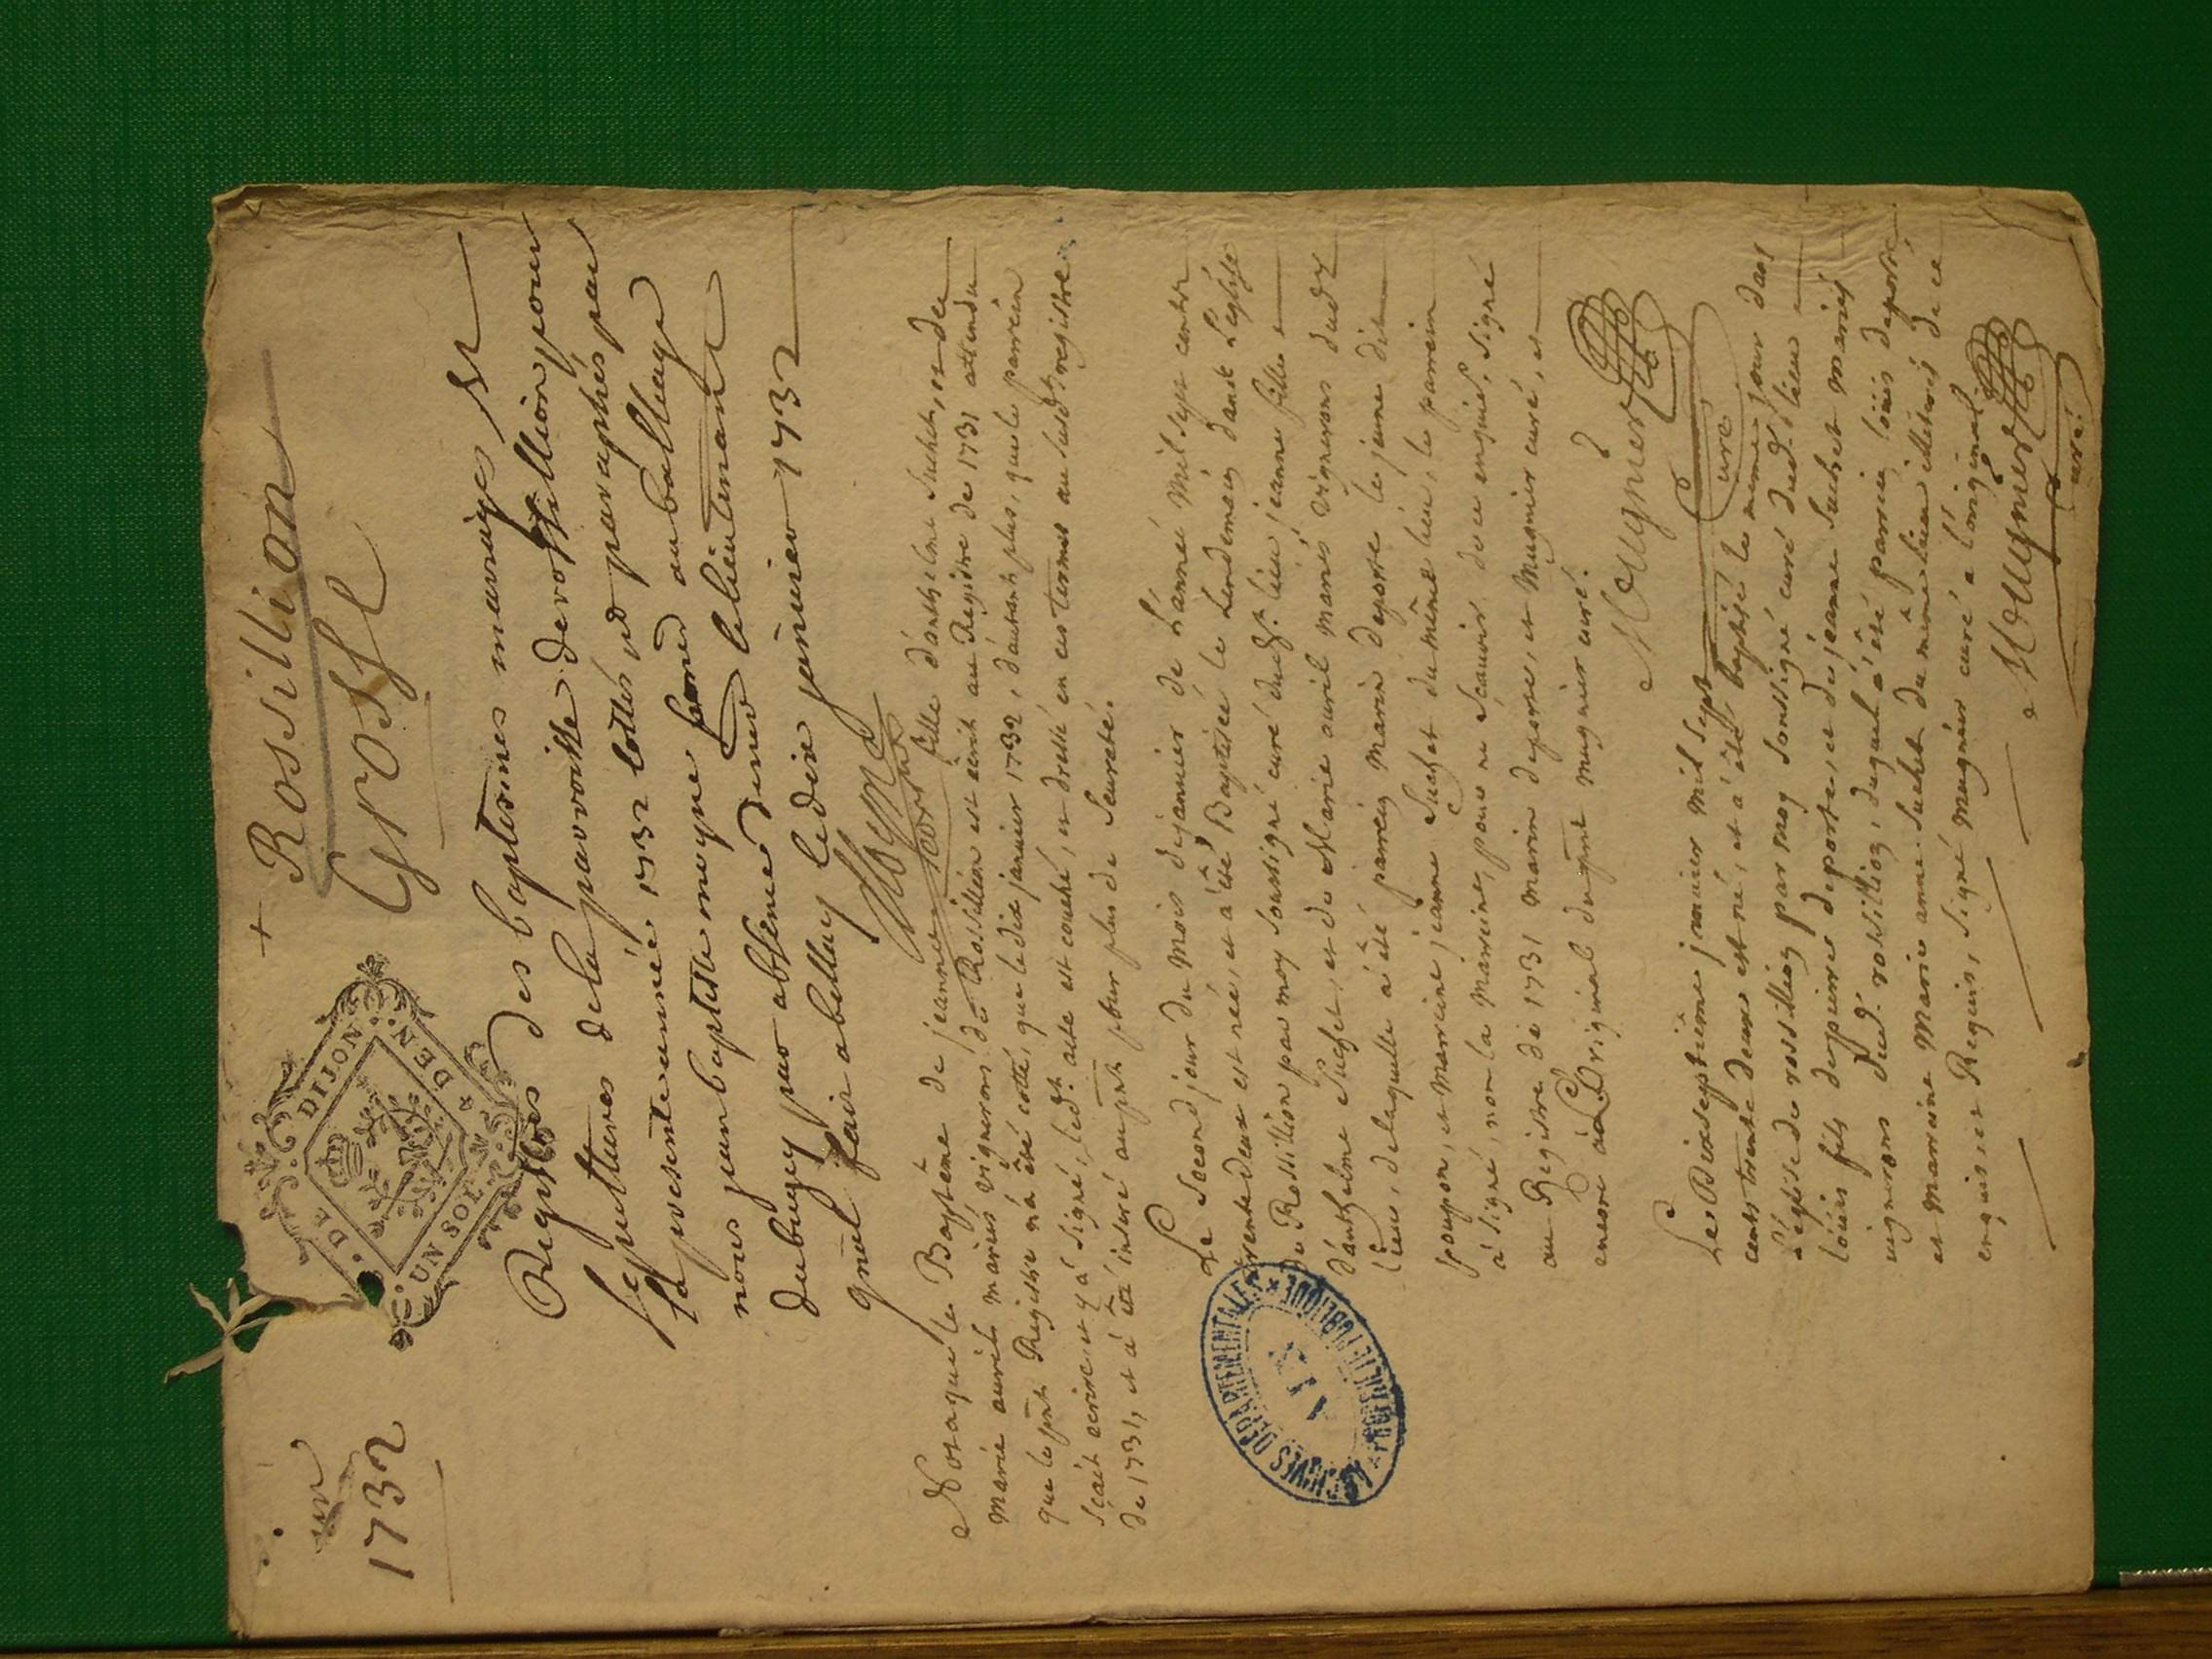 + Rossillion
Grosse
1732
DE DIJON
UN SOL 4 DEN
Registres des baptesmes mariages et
sepultures de la parroisse de rossillion pour
la presente année 1732 cottés et paraphés par
nous jean baptiste moyne au balliage
du bugey par absence de lieutenant
fait a bellay le dix janvier 1732
Moyne
Nota que le Baptême de jeanne Marie fille d'anthelme Suchet, et de
Marie auril mariés vignerons de Rossillion est écrit au Registre de 1731 attendu
que le pnt Registre n'a êté cotté, que le dix janvier 1732, d'autant plus, que le parrein
sçait ecrire, et y a signé, led.t acte est couché, et dressé en ces termes au susd.t registre
de 1731, et a êté inseré au pnt pour plus de Seureté.
Le second jour du Mois de janvier de L'année Mil sept cents
trente deux est née, et a êté Baptisée le Lendemain dans L'eglise
de Rossillion par moy soussigné curé dud.t lieu jeanne fille
d'anthelme Suchet, et de Marie auril mariés vignerons dud.t
lieu, de laquelle a êté parrein Marin deporte le jeune dit
poupon, et Marreine jeanne Suchet du même lieu, le parrein
a signé, non la Marreine, pour ne sçavoir de ce enquise, signé
au Registre de 1731 marin deporte, et Mugnier curé, et
encore à L'Original du pnt Mugnier curé.
Mougnier
Curé
Le Dixseptième janvier mil sept
cents trente deux est né, et a êté baptisé le meme jour dans
l'eglise de rossillion par moy soussigné curé dud.t lieu
Loüis fils de pierre deporte, et de jeanne Suchet mariés
vignerons dud.t rossillion, duquel a êté parrein loüis deporte
et Marreine Marie anne Suchet du même lieu illiterés de ce
enquis et Requis, signé Mugnier curé a l'original
Mougnier
Curé
ARCHIVES DÉPARTEMENTALES * PROPRIÉTÉ PUBLIQUE *
AIN